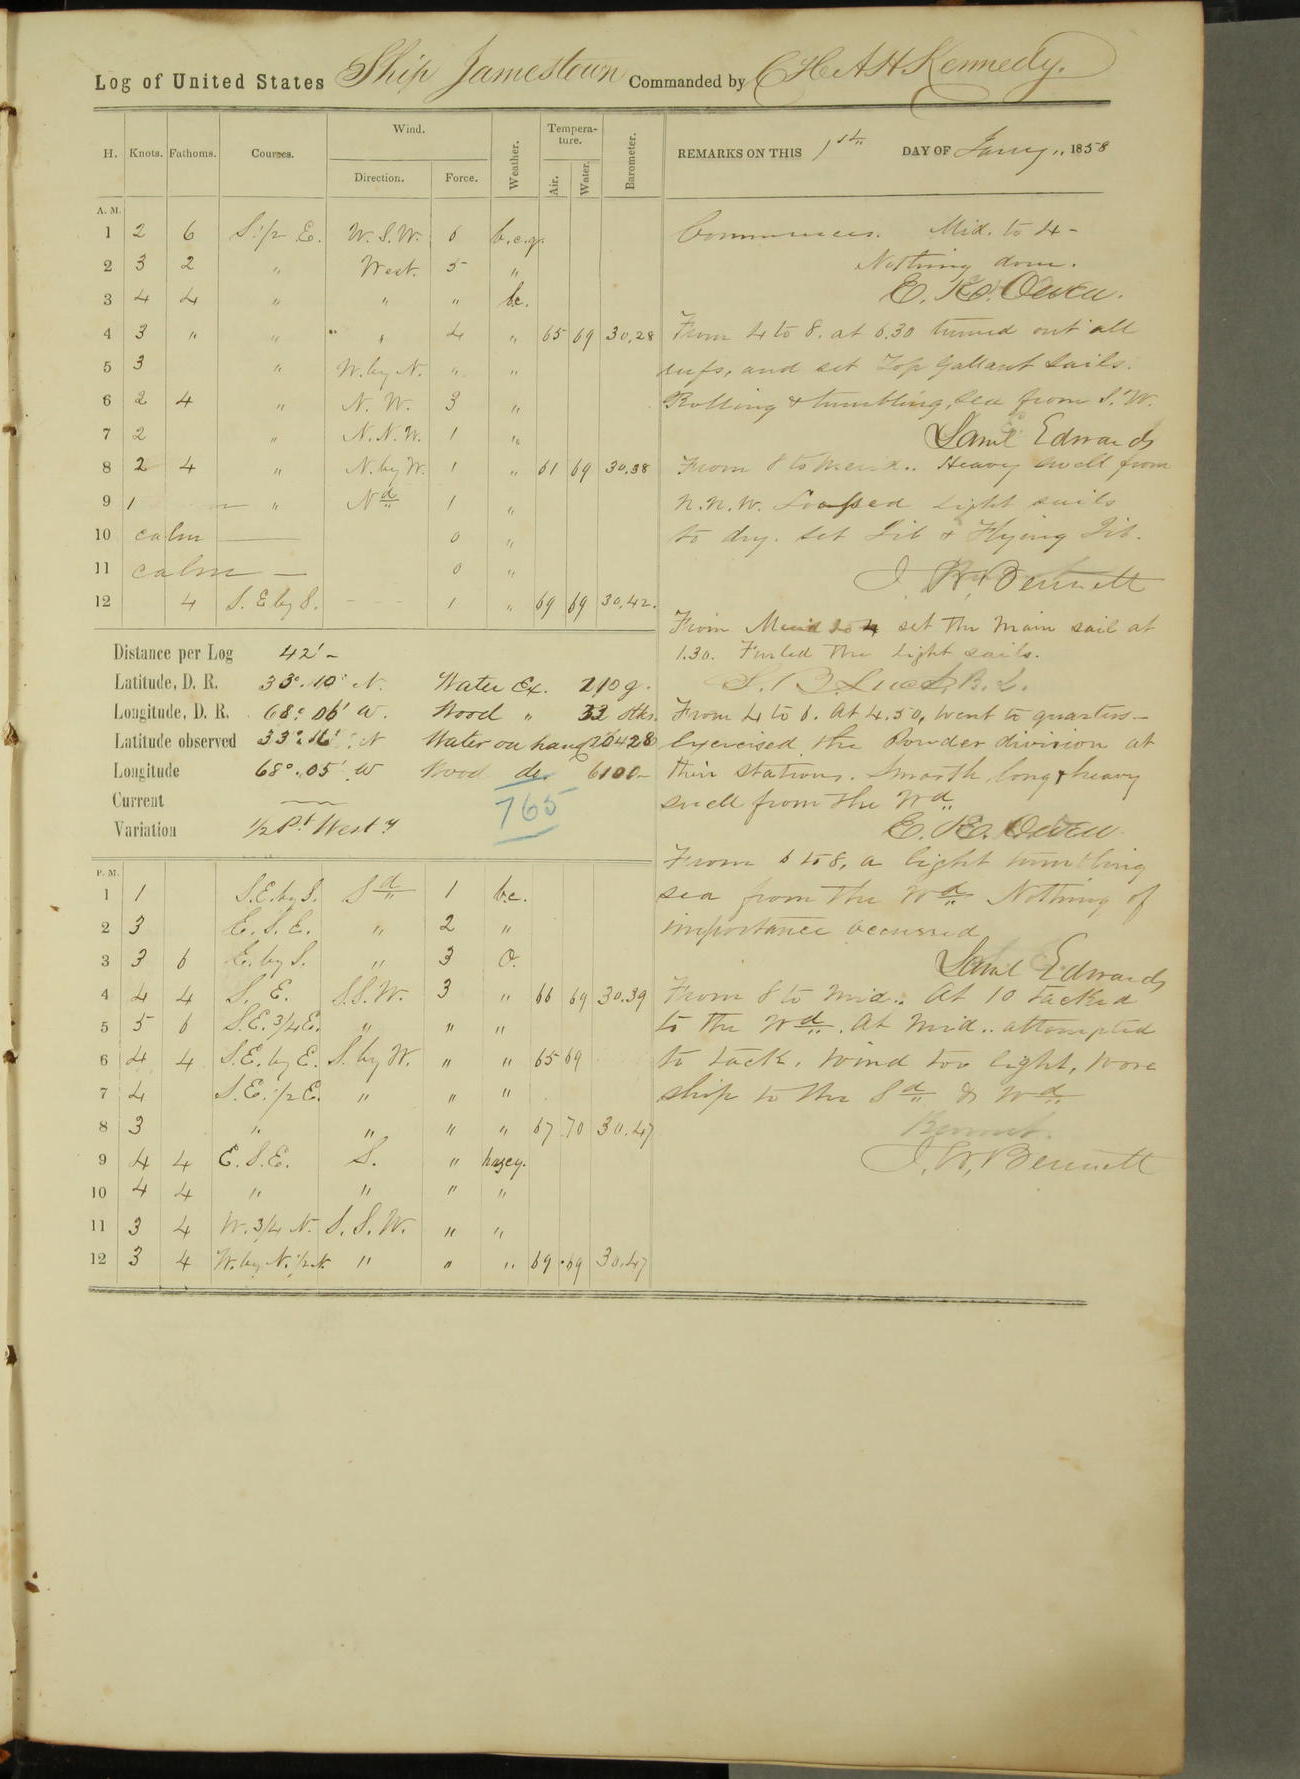 Log of United States Ship Jamestown Commanded by C. H. A. H. Kennedy.
H. Knots. Fathoms. Courses. Wind. Direction. Force. Weather. Temperature. Air. Water. Barometer. REMARKS ON THIS 1st DAY OF Jany 1858
A. M.
1 2 6 S. 1/2 E. W.S.W. 6 b.c.q.
2 3 2 " West. 5 "
3 4 4 " " " bc.
4 3 " " " 4 " 65 69 30,28
5 3 " W. by N. " "
6 2 4 " N. W. 3 "
7 2 " N. N. W. 1 "
8 2 4 " N. by W. 1 " 61 69 30,38
9 1 — " Nd 1 "
10 calm — 0 "
11 calm — 0 "
12 4 S. E by S. 1 " 69 69 30,42.
Distance per Log 42' -
Latitude, D. R. 33°. 10' N. Water Ex. 210 g.
Longitude, D. R. 68° 06' W. Wood " 32 stks
Latitude observed 33° 16' N Water on hand 20428
Longitude 68°. 05' W Wood do. 6100 -
Current —
Variation 1/2 Pt West y
765
P. M.
1 1 S.E. by S. Sd 1 b.c.
2 3 E. S. E. " 2 "
3 3 6 E. by S. " 3 O.
4 4 4 S. E. S.S.W. 3 " 66 69 30.39
5 5 6 S.E. 3/4 E. " " "
6 4 4 S.E. by E. S. by W. " " 65 69
7 4 S. E. 1/2 E. " " "
8 3 " " " " 67 70 30.47
9 4 4 E. S. E. S. " hazy.
10 4 4 " " " "
11 3 4 W. 3/4 N. S. S. W. " "
12 3 4 W. by N. 1/2 N. " " " 69 69 30.47
Commences. Mid. to 4 -
Nothing done.
E. K. Owen.
From 4 to 8. at 6.30 turned out all
reefs, and set Top Gallant Sails.
Rolling & tumbling, sea from S. W.
Saml Edwards
From 8 to Merid.. Heavy swell from
N. N. W. Loosed light sails
to dry. set Jib & Flying Jib.
J. W. Bennett
From Merid to 4 set the Main sail at
1.30. Furled the light sails.
S. B. Luce
From 4 to 6. At 4.50, went to quarters -
Exercised the Powder division at
their stations. Smooth, long & heavy
swell from the Nd
E. K. Owen
From 6 to 8, a light tumbling
sea from the Nd Nothing of
importance occurred
Saml Edwards
From 8 to Mid.. At 10 tacked
to the Wd. At Mid.. attempted
to tack, wind too light, wore
ship to the Sd & Wd
Bennett.
J. W. Bennett